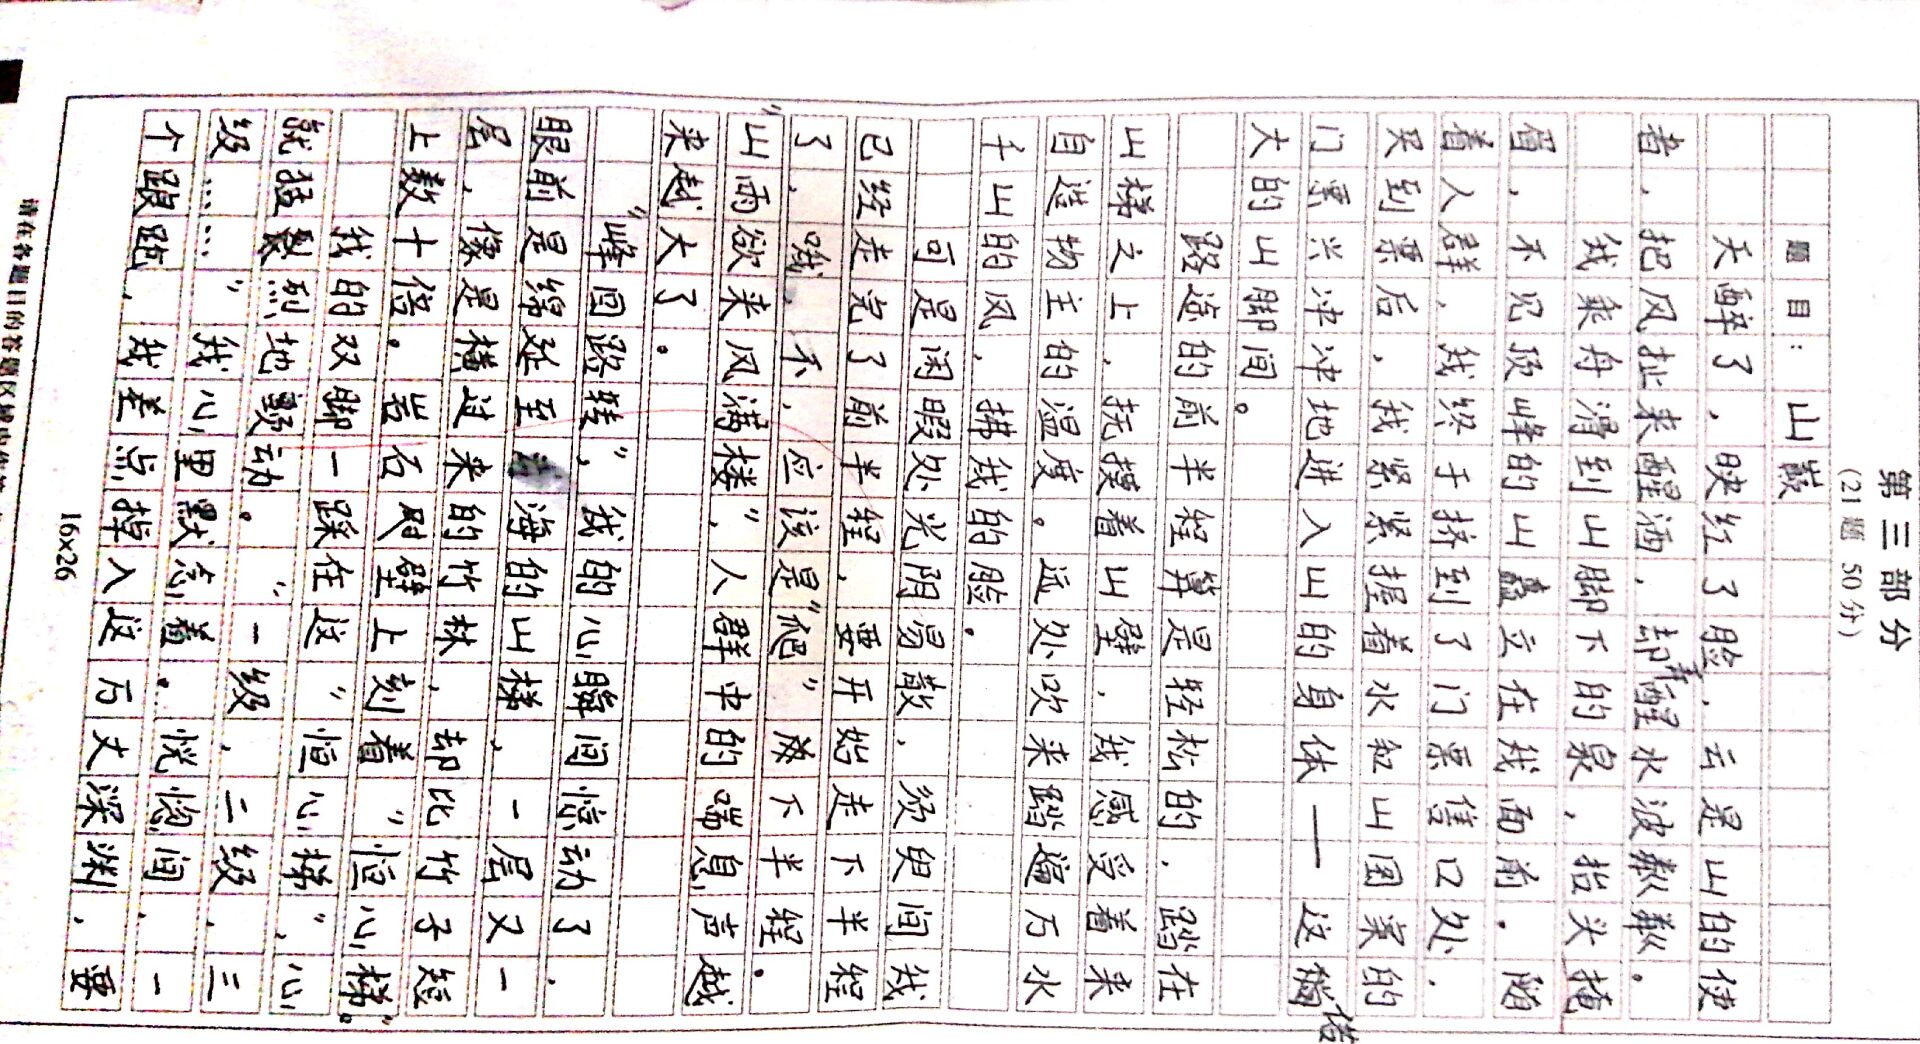 第三部分
(21题 50分)
题目：山巅
天醉了，映红了脸，云是山的使
者，把风扯来醒酒，却弄醒水波粼粼。
我乘舟滑到山脚下的泉，抬头掩
眉，不见顶峰的山矗立在我面前。随
着人群，我终于挤到了门票售口处，
买到票后，我紧紧握着水和山国的
门票兴冲冲地进入山的身体——这偌
大的山脚间。
路途的前半程算是轻松的，踏在
山梯之上，抚摸着山壁，我感受着来
自造物主的温度。远处吹来踏遍万水
千山的风，拂我的脸。
可是闲暇处光阴易散，须臾间我
已经走完了前半程，要开始走下半程
了，哦，不，应该是“爬”下半程。
“山雨欲来风满楼”，人群中的喘息声越
来越大了。
“峰回路转”，我的心瞬间惊动了，
眼前是绵延至海的山梯，一层又一
层，像是横过来的竹林，却比竹子短
上数十倍。岩石壁上刻着“恒心梯。”
我的双脚一踩在这“恒心梯”，心
就猛烈地颤动。“一级，二级，三
级……”我心里默念着。恍惚间，一
个踉跄，我差点掉入这万丈深渊，要
16×26